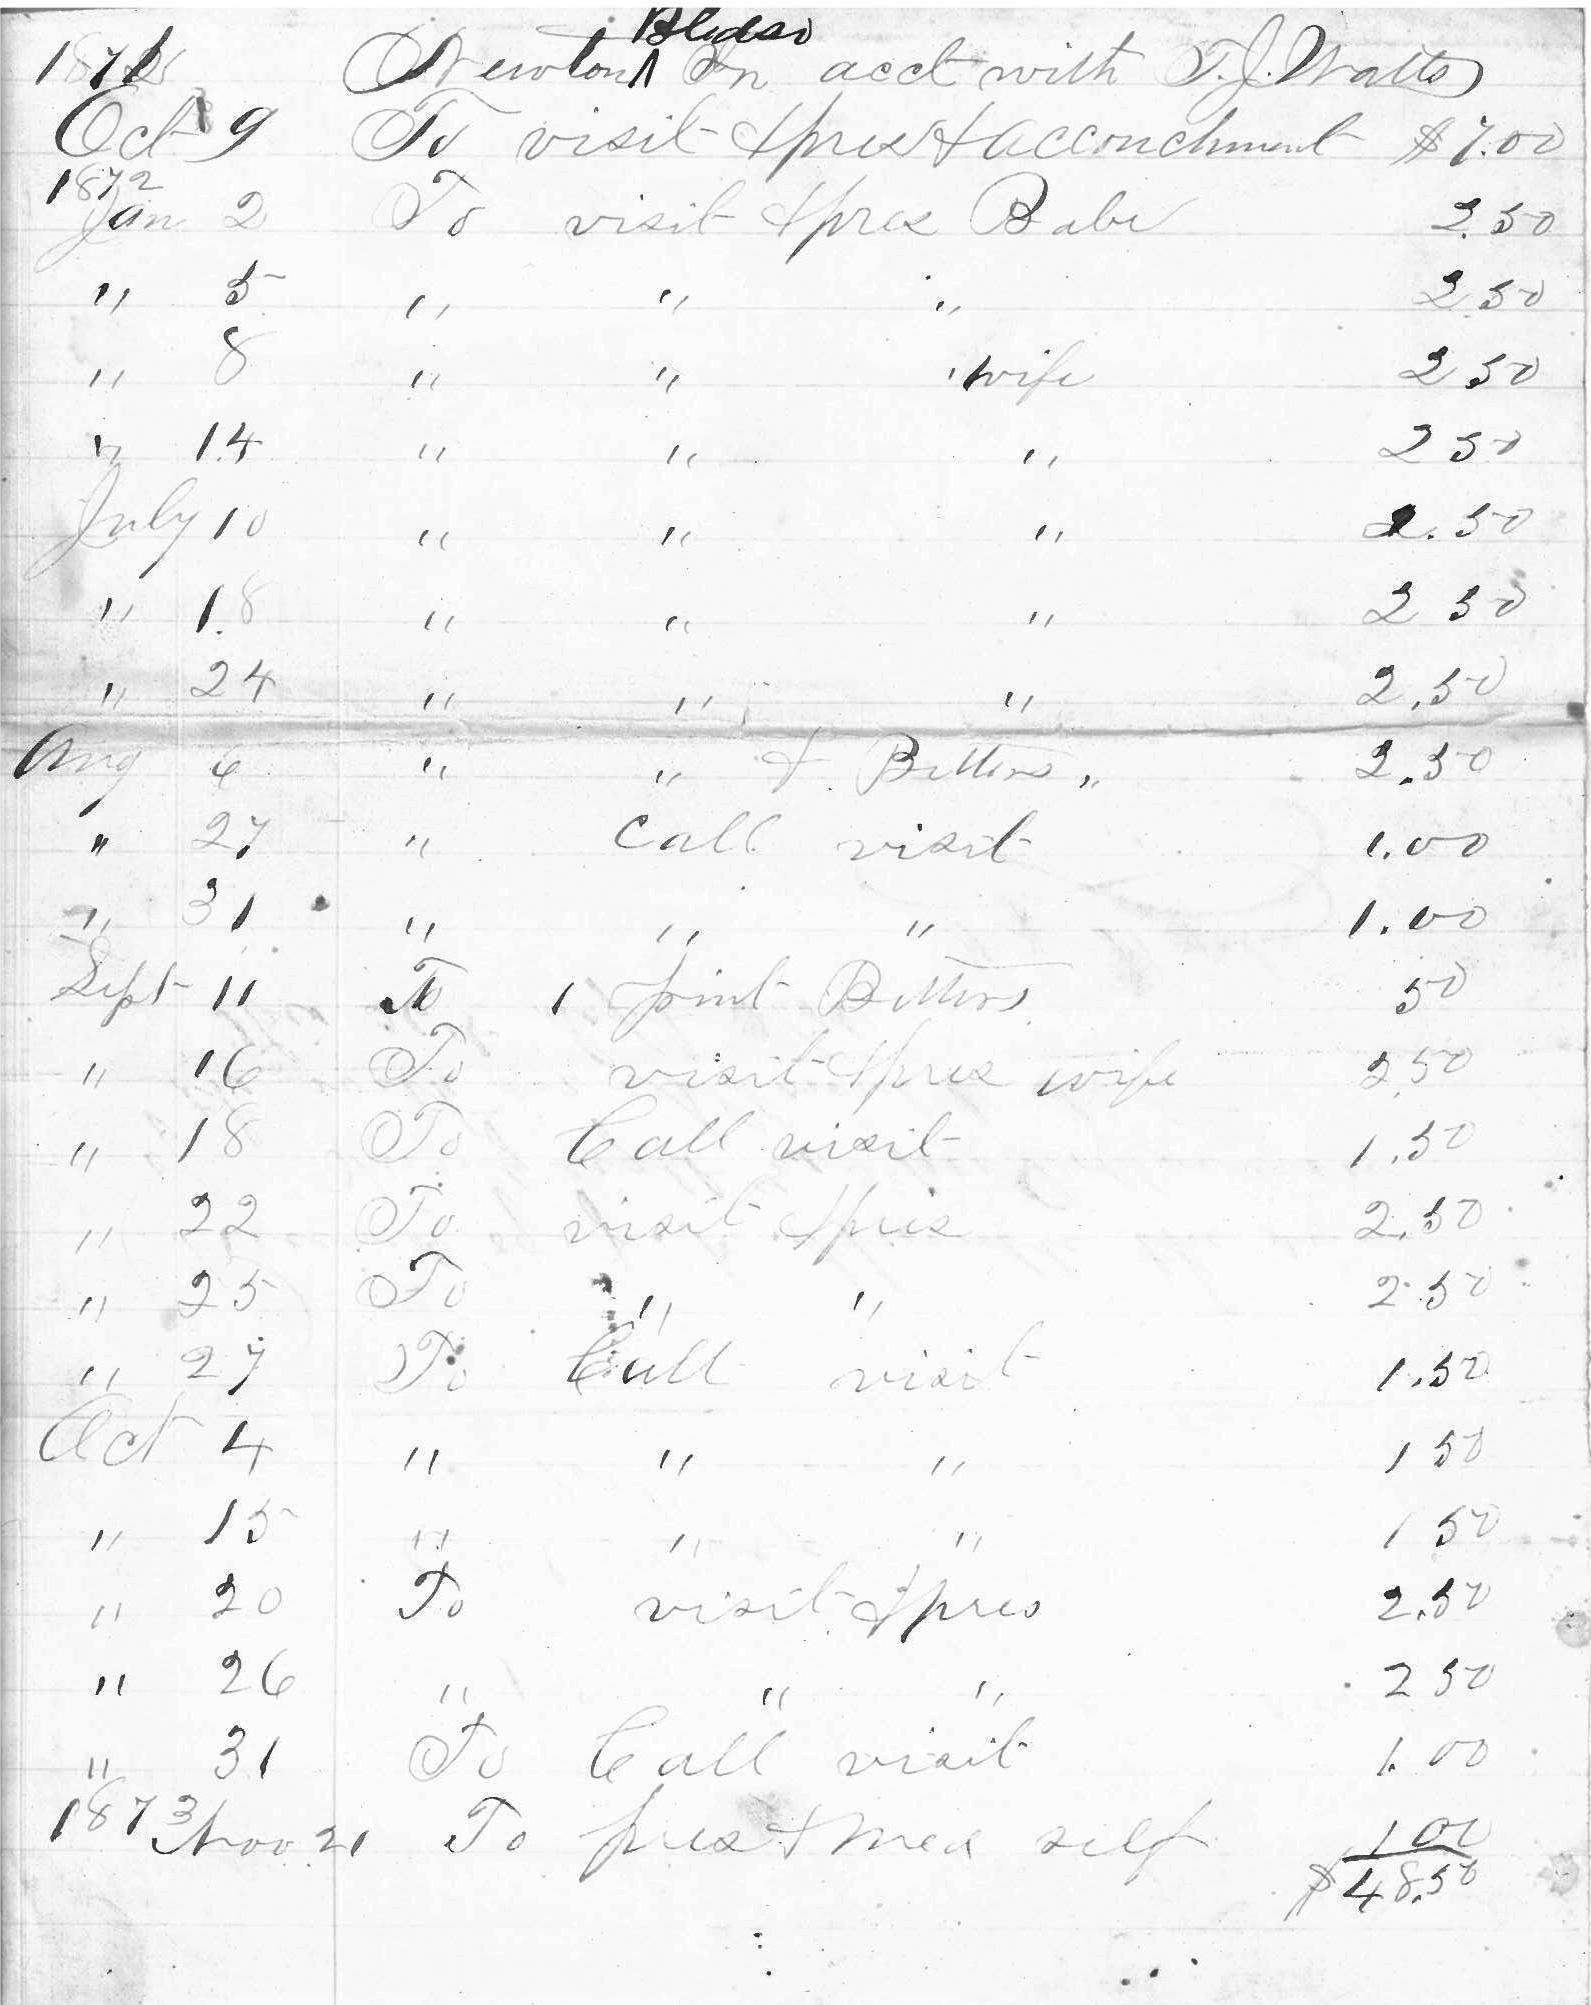 Bledso
1871 Newton ^ In acct with T.J. Watts
Oct 9 To visit & pres & acconchment $7.00
1872
Jan 2 To visit & pres Babe 2.50
" 5 " " " 2 50
" 8 " " " wife 2 50
" 14 " " " 2 50
July 10 " " " 2.50
" 18 " " " 2 50
" 24 " " " 2.50
Aug 6 " " & Bitters " 2.50
" 27 " Call visit 1.00
" 31 " " " 1.00
Sept 11 To 1 pint Bitters 50
" 16 To visit & pres wife 2.50
" 18 To Call visit 1.50
" 22 To visit & pres 2.50
" 25 To " " 2.50
" 27 To Call visit 1.50
Oct 4 " " " 1 50
" 15 " " " 1 50
" 20 To visit & pres 2.50
" 26 " " " 2 50
" 31 To Call visit 1.00
1873 Nov 21 To pres & Med self 1 00
$48.50